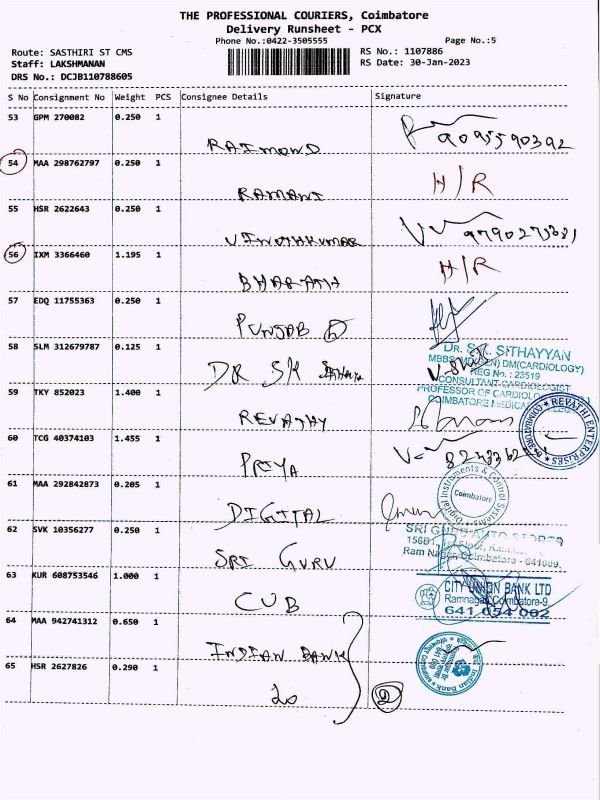 THE PROFESSIONAL COURIERS, Coimbatore
Delivery Runsheet - PCX
Phone No.:0422-3505555
Page No.:5
Route: SASTHIRI ST CMS
RS No.: 1107886
Staff: LAKSHMANAN
RS Date: 30-Jan-2023
DRS No.: DCJB110788605
S No Consignment No Weight PCS Consignee Details Signature
53 GPM 270082 0.250 1
RAIMOND 9095590392
54 MAA 298762797 0.250 1
RAMANI H/R
55 HSR 2622643 0.250 1
VINOTHKUMAR
56 IXM 3366460 1.195 1
BHARATH H/R
57 EDQ 11755363 0.250 1
PUNJAB
58 SLM 312679787 0.125 1
DR SK
DR. S.K. SITHAYYAN
DM(CARDIOLOGY)
REG No. : 23519
CONSULTANT CARDIOLOGIST
PROFESSOR OF CARDIOLOGY
COIMBATORE MEDICAL
59 TKY 852023 1.400 1
REVATHY
REVATHI ENTERPRISES
60 TCG 40374103 1.455 1
PRIYA
61 MAA 292842873 0.205 1
DIGITAL
Digital Instruments & Control Systems
Coimbatore
62 SVK 10356277 0.250 1
SRI GURU
SRI GURU AUTO STORES
Ram Nagar, Coimbatore - 641009.
63 KUR 608753546 1.000 1
CUB
CITY UNION BANK LTD
Ramnagar, Coimbatore-9
641 054 002
64 MAA 942741312 0.650 1
INDIAN BANK
65 HSR 2627826 0.290 1
20
2